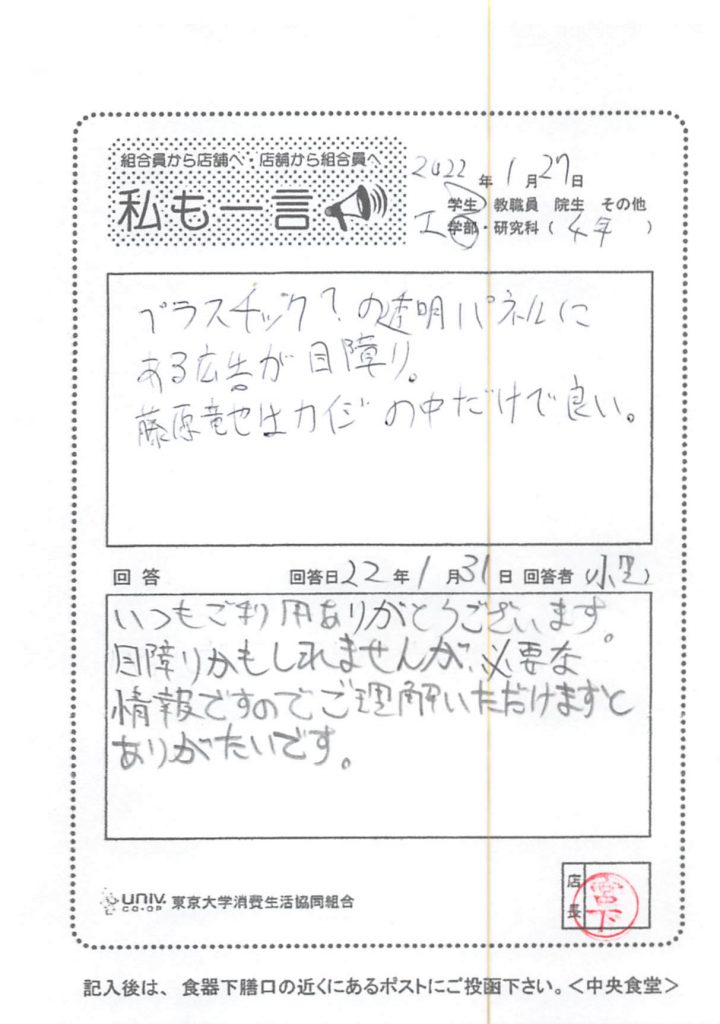 組合員から店舗へ・店舗から組合員へ
私も一言
2022年1月27日
学生 教職員 院生 その他
工学部・研究科(4年)
プラスチック?の透明パネルに
ある広告が目障り。
藤原竜也はカイジの中だけで良い。
回答 回答日22年1月31日 回答者(小里)
いつもご利用ありがとうございます。
目障りかもしれませんが、必要な
情報ですのでご理解いただけますと
ありがたいです。
店長
宮下
UNIV. CO-OP 東京大学消費生活協同組合
記入後は、食器下膳口の近くにあるポストにご投函下さい。<中央食堂>